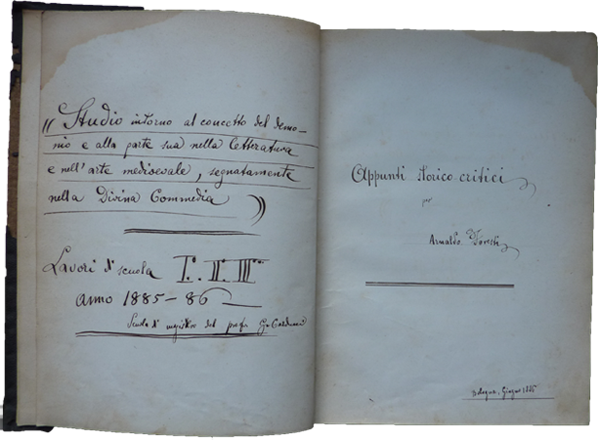 "Studio intorno al concetto del demo-
nio e alla parte sua nella letteratura
e nell'arte medioevale, segnatamente
nella Divina Commedia"
Lavori di scuola I. II. III
anno 1885-86
Scuola di magistero del prof. G. Carducci
Appunti storico critici
per
Arnaldo Foresti
Bologna, Giugno 1885